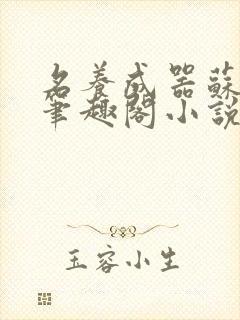 名養成器蘇
筆趣閣小說
玉容小生